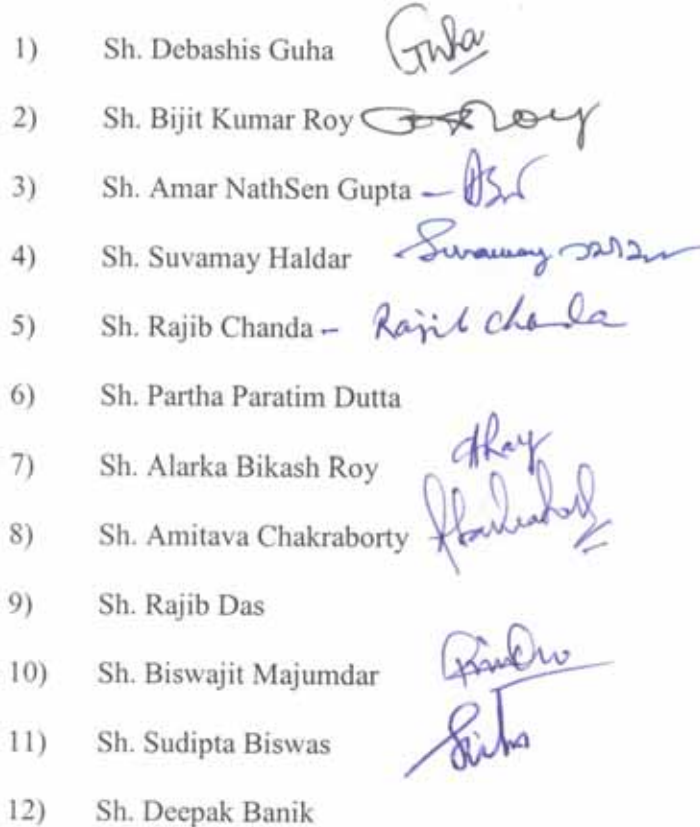 1) Sh. Debashis Guha Guha
2) Sh. Bijit Kumar Roy Roy
3) Sh. Amar NathSen Gupta –
4) Sh. Suvamay Haldar Suvamay
5) Sh. Rajib Chanda – Rajib Chanda
6) Sh. Partha Paratim Dutta
7) Sh. Alarka Bikash Roy
8) Sh. Amitava Chakraborty
9) Sh. Rajib Das
10) Sh. Biswajit Majumdar
11) Sh. Sudipta Biswas
12) Sh. Deepak Banik